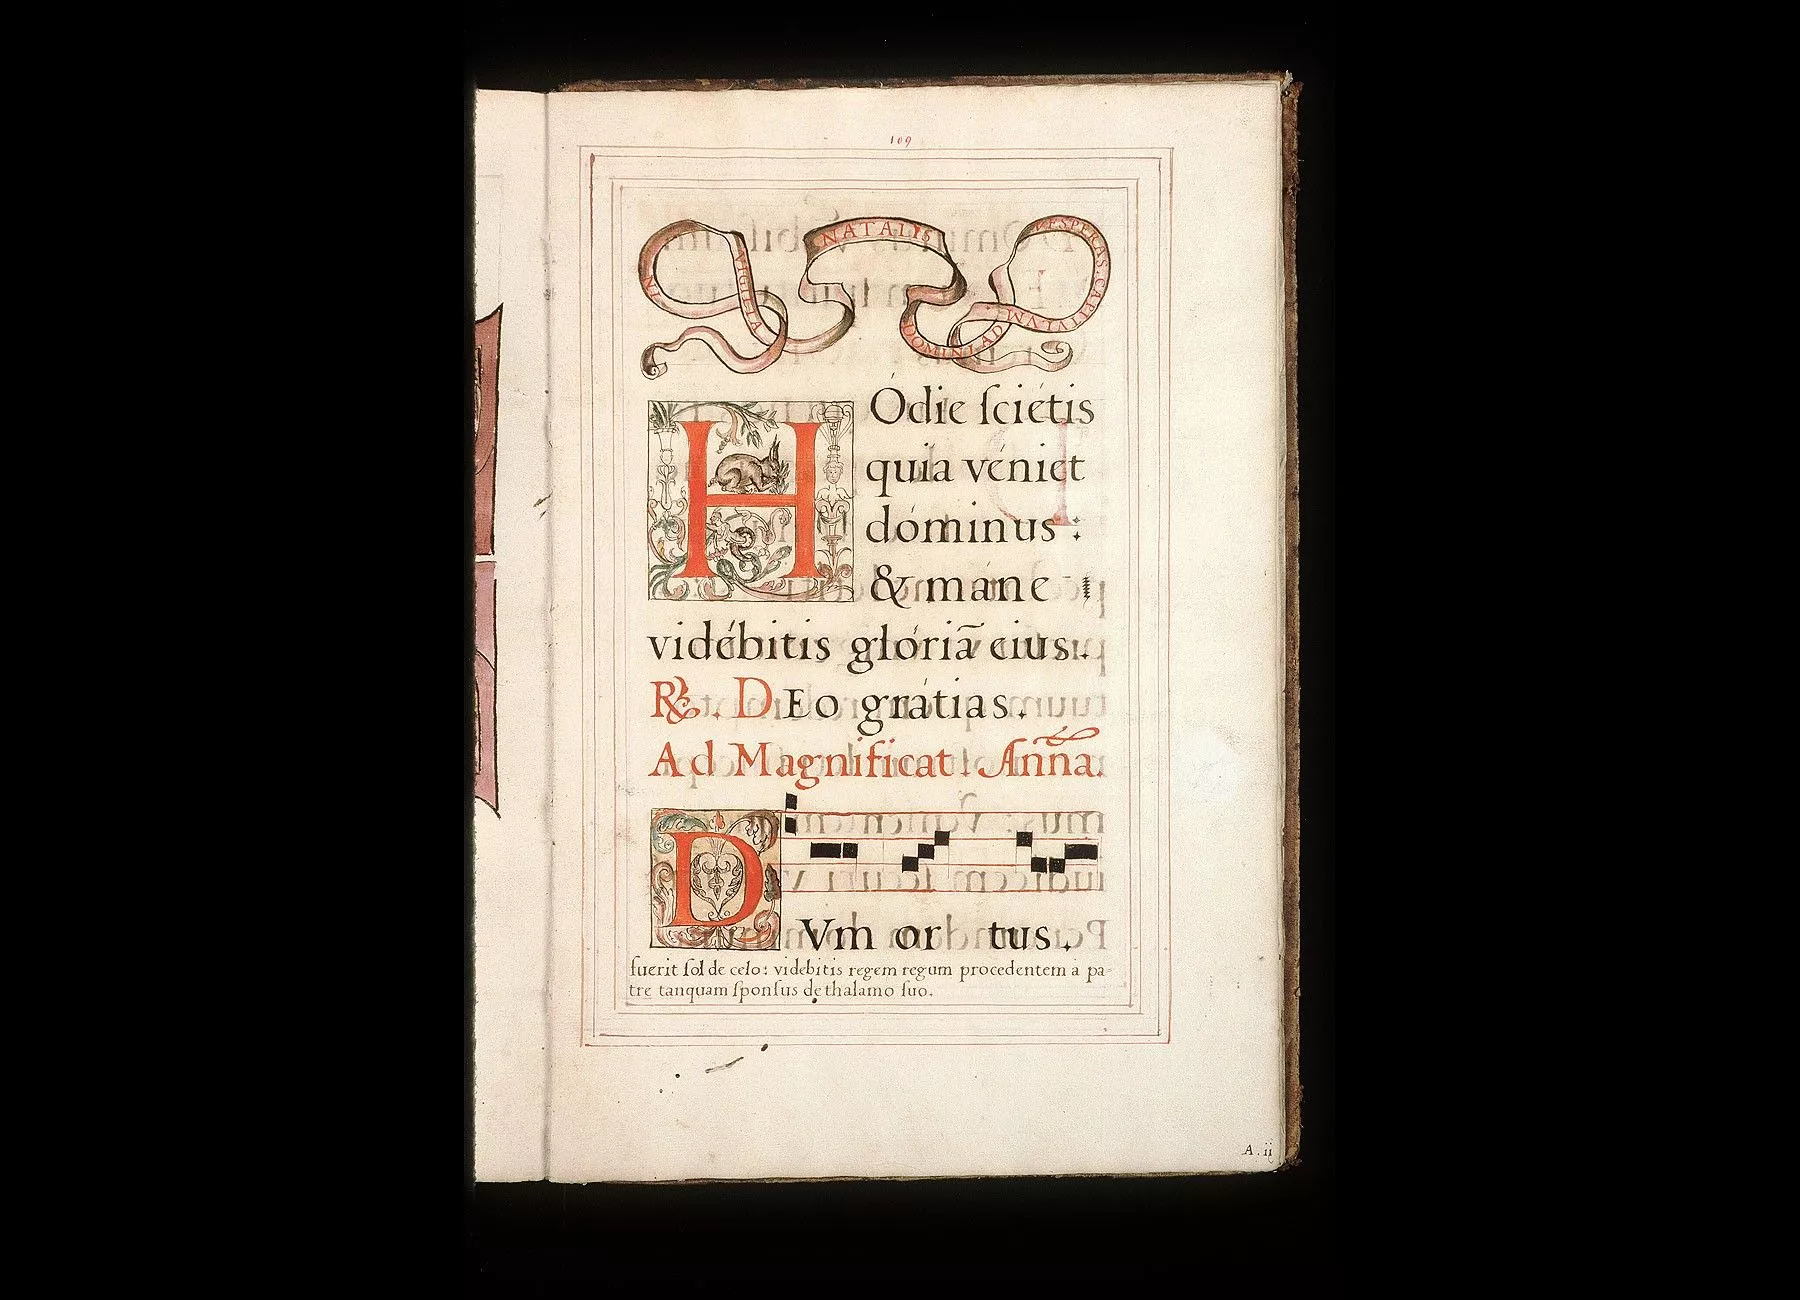 109
IN VIGILIA NATALIS DOMINI AD VESPERAS. CAPITVLVM
HÓdie ſciétis
quia véniet
dóminus :
& máne
vidébitis glóriã eius.
℟. DEo grátias.
Ad Magnificat. Anña.
DVm or tus.
fuerit ſol de celo: videbitis regem regum procedentem a pa-
tre tanquam ſponſus de thalamo ſuo.
A. ij